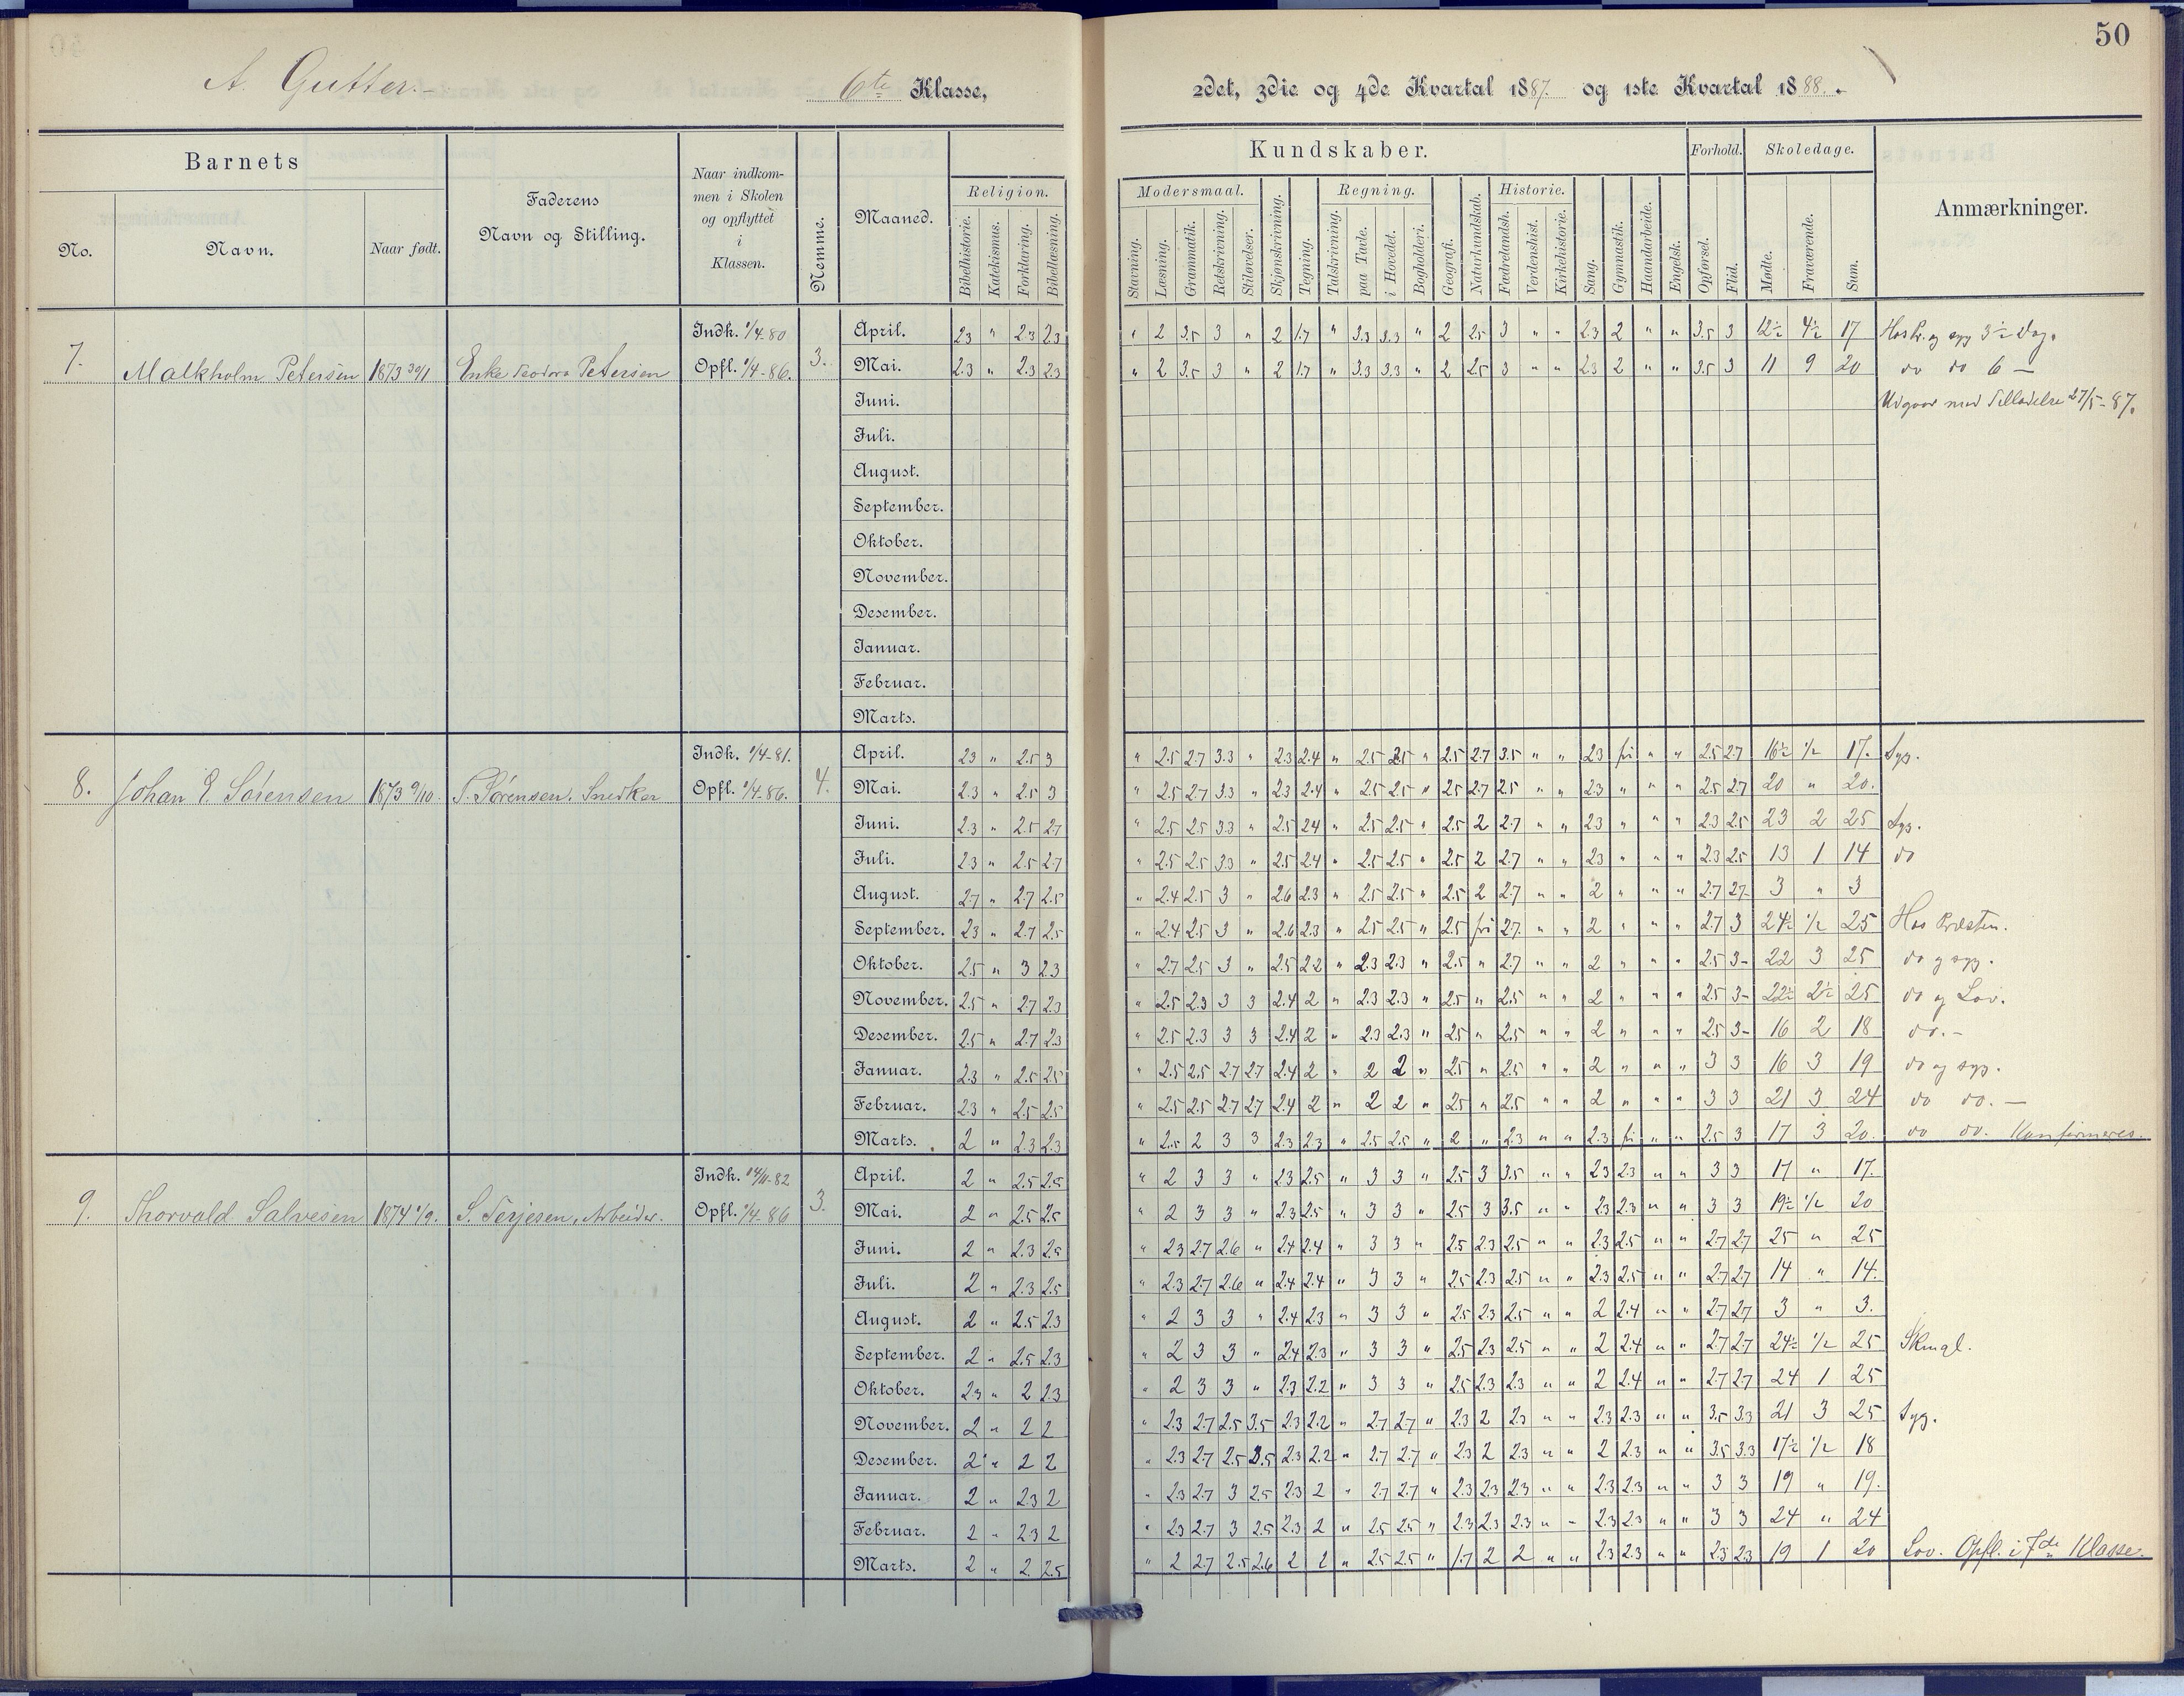 50
A. Gutter. 6te Klasse, 2det, 3die og 4de Kvartal 1887. og 1ste Kvartal 1888.
Barnets
No. Navn. Naar født.
Faderens Navn og Stilling.
Naar indkommen i Skolen og opflyttet i Klassen.
Nemme.
Maaned.
Kundskaber.
Religion. Modersmaal. Regning. Historie.
Bibelhistorie. Katekismus. Forklaring. Bibellæsning. Stavning. Læsning. Grammatik. Retskrivning. Stiløvelser. Skjønskrivning. Tegning. Talskrivning. paa Tavle. i Hovedet. Bogholderi. Geografi. Naturkundskab. Fædrelandsh. Verdenshist. Kirkehistorie. Sang. Gymnastik. Haandarbeide. Engelsk.
Forhold. Opførsel. Flid.
Skoledage. Mødte. Fraværende. Sum.
Anmærkninger.
7. Malkholm Petersen 1873 30/1 Enke Teodora Petersen Indk. 1/4-80 Opfl. 1/4-86. 3.
April. 2.3 " 2.3 2.3 " 2 3.5 3 " 2 1.7 " 3.3 3.3 " 2 2.5 3 " " 2.3 2 " " 3.5 3 12½ 4½ 17 Hos Pr. og syg 3½ Dag.
Mai. 2.3 " 2.3 2.3 " 2 3.5 3 " 2 1.7 " 3.3 3.3 " 2 2.5 3 " " 2.3 2 " " 3.5 3 11 9 20 do do 6 —
Juni. Udgaar med Tilladelse 27/5-87.
Juli.
August.
September.
Oktober.
November.
Desember.
Januar.
Februar.
Marts.
8. Johan E. Sørensen 1873 9/10. S. Sørensen, Snedker Indk. 1/4-81. Opfl. 1/4-86. 4.
April. 2.3 " 2.5 3 " 2.5 2.7 3.3 " 2.3 2.4 " 2.5 2.5 " 2.5 2.7 3.5 " " 2.3 fri " " 2.5 2.7 16½ 1/2 17. Syg.
Mai. 2.3 " 2.5 3 " 2.5 2.7 3.3 " 2.3 2.4 " 2.5 2.5 " 2.5 2.7 2.5 " " 2.3 " " " 2.5 2.7 20 " 20.
Juni. 2.3 " 2.5 2.7 " 2.5 2.5 3.3 " 2.5 2.4 " 2.5 2.5 " 2.5 2 2.7 " " 2.3 " " " 2.3 2.5 23 2 25 Syg.
Juli. 2.3 " 2.5 2.7 " 2.5 2.5 3.3 " 2.5 2.4 " 2.5 2.5 " 2.5 2 2.7 " " 2.3 " " " 2.3 2.5 13 1 14 do
August. 2.7 " 2.7 2.5 " 2.4 2.5 3 " 2.6 2.3 " 2.5 2.5 " 2.5 2 2.7 " " 2 " " " 2.7 2.7 3 " 3
September. 2.3 " 2.7 2.5 " 2.4 2.5 3 " 2.6 2.3 " 2.5 2.5 " 2.5 fri 2.7 " " 2 " " " 2.7 3 24½ 1/2 25 Hos Præsten.
Oktober. 2.5 " 3 2.3 " 2.7 2.5 3 " 2.5 2.2 " 2.3 2.3 " 2.5 " 2.7 " " 2 " " " 2.5 3- 22 3 25 do og syg.
November. 2.5 " 2.7 2.3 " 2.5 2.3 3 3 2.4 2 " 2.3 2.3 " 2.5 " 2.5 " " 2 " " " 2.5 3- 22½ 2½ 25 do og Lov.
Desember. 2.5 " 2.7 2.3 " 2.5 2.3 3 3 2.4 2 " 2.3 2.3 " 2.5 " 2.5 " " 2 " " " 2.5 3- 16 2 18 do. -
Januar. 2.3 " 2.5 2.5 " 2.5 2.5 2.7 2.7 2.4 2 " 2 2 " 2.5 " 2.5 " " 2 " " " 3 3 16 3 19 do og syg.
Februar. 2.3 " 2.5 2.5 " 2.5 2.5 2.7 2.7 2.4 2 " 2 2 " 2.5 " 2.5 " " 2 " " " 3 3 21 3 24 do do. —
Marts. 2 " 2.3 2.3 " 2.5 2 3 3 2.3 2.3 " 2.5 2.5 " 2 " 2.3 " " 2.3 fri " " 2.5 3 17 3 20. do do. Konfirmeres.
9. Thorvald Salvesen 1874 1/9. S. Terjesen, Arbeider. Indk. 14/11-82 Opfl. 1/4-86 3.
April. 2 " 2.5 2.5 " 2 3 3 " 2.3 2.5 " 3 3 " 2.5 3 3.5 " " 2.3 2.3 " " 3 3 17 " 17.
Mai. 2 " 2.5 2.5 " 2 3 3 " 2.3 2.5 " 3 3 " 2.5 3 3.5 " " 2.3 2.3 " " 3 3 19½ 1/2 20
Juni. 2 " 2.3 2.5 " 2.3 2.7 2.6 " 2.4 2.4 " 3 3 " 2.5 2.3 2.5 " " 2.3 2.5 " " 2.7 2.7 25 " 25
Juli. 2 " 2.3 2.5 " 2.3 2.7 2.6 " 2.4 2.4 " 3 3 " 2.5 2.3 2.5 " " 2.3 2.5 " " 2.7 2.7 14 " 14.
August. 2 " 2.5 2.3 " 2 3 3 " 2.4 2.3 " 3 3 " 2.5 2.3 2.5 " " 2 2.4 " " 2.7 2.7 3 " 3.
September. 2 " 2.5 2.3 " 2 3 3 " 2.4 2.3 " 3 3 " 2.5 2.3 2.5 " " 2 2.4 " " 2.7 2.7 24½ 1/2 25 Skmgl.
Oktober. 2.3 " 2 2.3 " 2 3 3 " 2.3 2.2 " 3 3 " 2.5 2.3 2.3 " " 2 2.4 " " 2.7 2.7 24 1 25
November. 2 " 2 2 " 2.3 2.7 2.5 3.5 2.3 2.2 " 2.7 2.7 " 2.3 2 2.3 " " 2.3 2.3 " " 3.5 3.3 21 3 25 Syg.
Desember. 2 " 2 2 " 2.3 2.7 2.5 3.5 2.3 2.2 " 2.7 2.7 " 2.3 2 2.3 " " 2 2.3 " " 3.5 3.3 17½ 1/2 18
Januar. 2 " 2.3 2 " 2.3 2.7 3 2.5 2.3 2 " 2.7 2.7 " 2.3 2.3 2.3 " " 2.3 2.3 " " 3 3 19 " 19.
Februar. 2 " 2.3 2 " 2.3 2.7 3 2.5 2.3 2 " 2.5 2.5 " 2.3 2.3 2.3 " " 2.3 2.3 " " 3 3 24 " 24
Marts. 2 " 2 2.5 " 2 2.7 2.5 2.6 2 2 " 2.5 2.5 " 1.7 2 2 " " 2.3 2.3 " " 2.3 2.3 19 1 20 Lov. Opfl. i 7de Klasse.